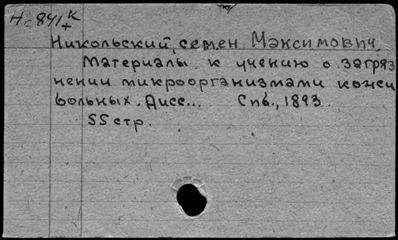 Нс 841 К
+
Никольский, Семен Максимович.
Материалы к учению о загряз
нении микроорганизмами кожи
больных. Дисс... Спб., 1893.
55 стр.